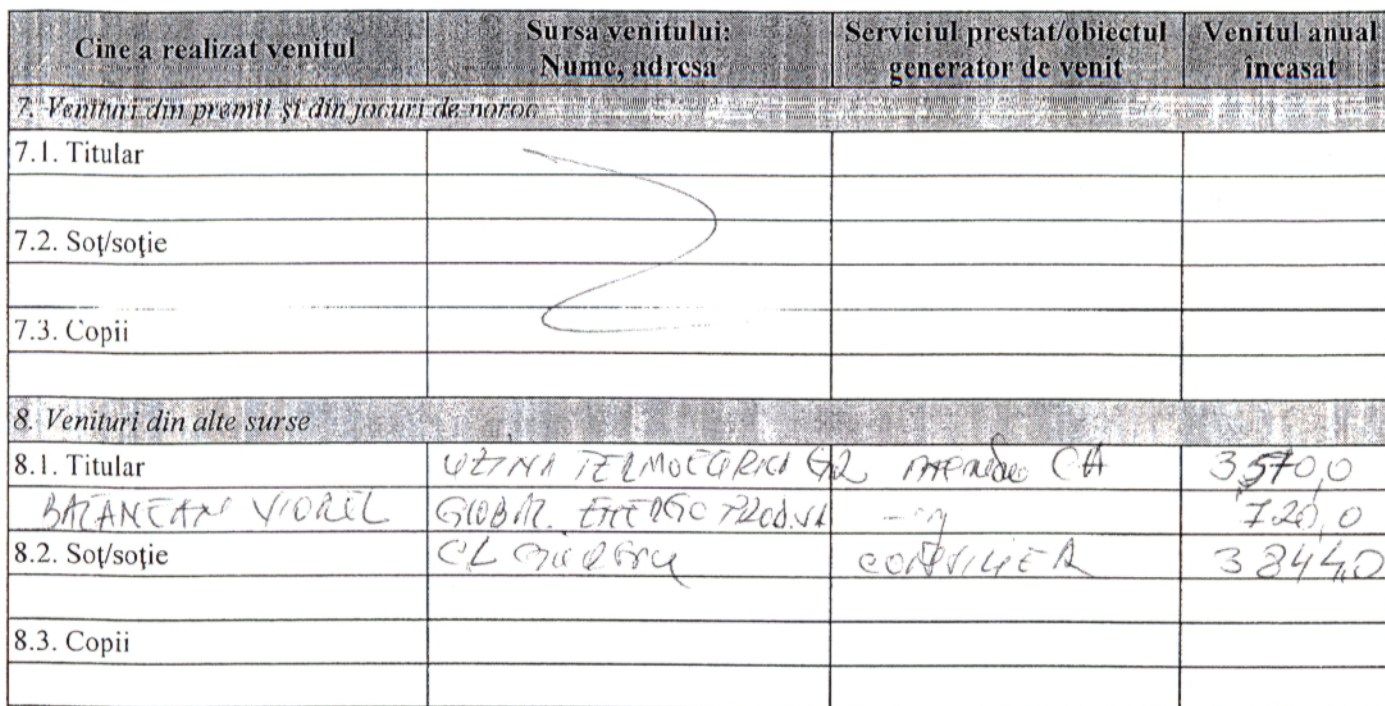 Cine a realizat venitul Sursa venitului: Nume, adresa Serviciul prestat/obiectul generator de venit Venitul anual încasat
7. Venituri din premii şi din jocuri de noroc
7.1. Titular
7.2. Soţ/soţie
7.3. Copii
8. Venituri din alte surse
8.1. Titular UZINA TERMOELECTRICA GR CA 3570,0
VIOREL GLOBAL ENERGO PROD.SA 720,0
8.2. Soţ/soţie CL CONSILIER 3844,0
8.3. Copii